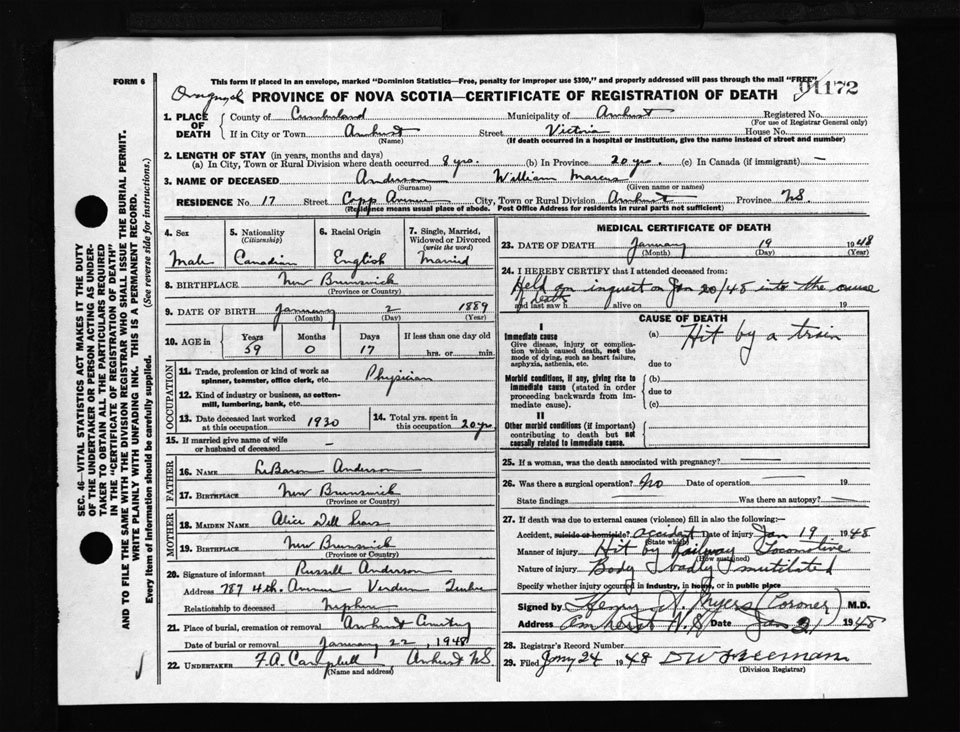 FORM 6
This form if placed in an envelope, marked "Dominion Statistics—Free, penalty for improper use $300," and properly addressed will pass through the mail "FREE"
01172
PROVINCE OF NOVA SCOTIA—CERTIFICATE OF REGISTRATION OF DEATH
1. PLACE OF DEATH
County of Cumberland Municipality of Amherst Registered No.
(For use of Registrar General only)
If in City or Town Amherst Street Victoria House No.
(Name) (If death occurred in a hospital or institution, give the name instead of street and number)
2. LENGTH OF STAY (in years, months and days)
(a) In City, Town or Rural Division where death occurred 8 yrs. (b) In Province 20 yrs. (c) In Canada (if immigrant) —
3. NAME OF DECEASED Anderson William Marcus
(Surname) (Given name or names)
RESIDENCE No. 17 Street Copp Avenue City, Town or Rural Division Amherst Province N.S.
(Residence means usual place of abode. Post Office Address for residents in rural parts not sufficient)
4. Sex Male
5. Nationality (Citizenship) Canadian
6. Racial Origin English
7. Single, Married, Widowed or Divorced (write the word) Married
8. BIRTHPLACE New Brunswick
(Province or Country)
9. DATE OF BIRTH January 2 1889
(Month) (Day) (Year)
10. AGE in Years Months Days If less than one day old
59 0 17 hrs. or min.
OCCUPATION
11. Trade, profession or kind of work as spinner, teamster, office clerk, etc. Physician
12. Kind of industry or business, as cotton-mill, lumbering, bank, etc.
13. Date deceased last worked at this occupation 1930
14. Total yrs. spent in this occupation 20 yrs
15. If married give name of wife or husband of deceased —
FATHER
16. NAME LeBaron Anderson
17. BIRTHPLACE New Brunswick
(Province or Country)
MOTHER
18. MAIDEN NAME Alice Dell Sears
19. BIRTHPLACE New Brunswick
(Province or Country)
20. Signature of informant Russell Anderson
Address 787 4th. Avenue Verdun Quebec
Relationship to deceased Nephew
21. Place of burial, cremation or removal Amherst Cemetery
Date of burial or removal January 22, 1948
22. UNDERTAKER F.A. Campbell Amherst N.S.
(Name and address)
MEDICAL CERTIFICATE OF DEATH
23. DATE OF DEATH January 19 1948
(Month) (Day) (Year)
24. I HEREBY CERTIFY that I attended deceased from:
Held an inquest on Jan 20/48 into the cause
of death
and last saw h alive on 19
CAUSE OF DEATH
I
Immediate cause
Give disease, injury or complication which caused death, not the mode of dying, such as heart failure, asphyxia, asthenia, etc.
(a) Hit by a train
due to
Morbid conditions, if any, giving rise to immediate cause (stated in order proceeding backwards from immediate cause).
(b)
due to
(c)
II
Other morbid conditions (if important) contributing to death but not causally related to immediate cause.
25. If a woman, was the death associated with pregnancy? —
26. Was there a surgical operation? No Date of operation —
State findings Was there an autopsy? —
27. If death was due to external causes (violence) fill in also the following:—
Accident, suicide or homicide? accident Date of injury Jan 19 1948
(State which)
Manner of injury Hit by Railway Locomotive
(How sustained)
Nature of injury Body badly mutilated
Specify whether injury occurred in industry, in home, or in public place
Signed by Henry Myers (Coroner) M.D.
Address Amherst N.S Date Jan 21 1948
28. Registrar's Record Number
29. Filed Jany 24 1948 DW Freeman
(Division Registrar)
SEC. 46—VITAL STATISTICS ACT MAKES IT THE DUTY
OF THE UNDERTAKER OR PERSON ACTING AS UNDER-
TAKER TO OBTAIN ALL THE PARTICULARS REQUIRED
IN THE "CERTIFICATE OF REGISTRATION OF DEATH"
AND TO FILE THE SAME WITH THE DIVISION REGISTRAR WHO SHALL ISSUE THE BURIAL PERMIT.
WRITE PLAINLY WITH UNFADING INK. THIS IS A PERMANENT RECORD.
Every item of Information should be carefully supplied. (See reverse side for instructions.)